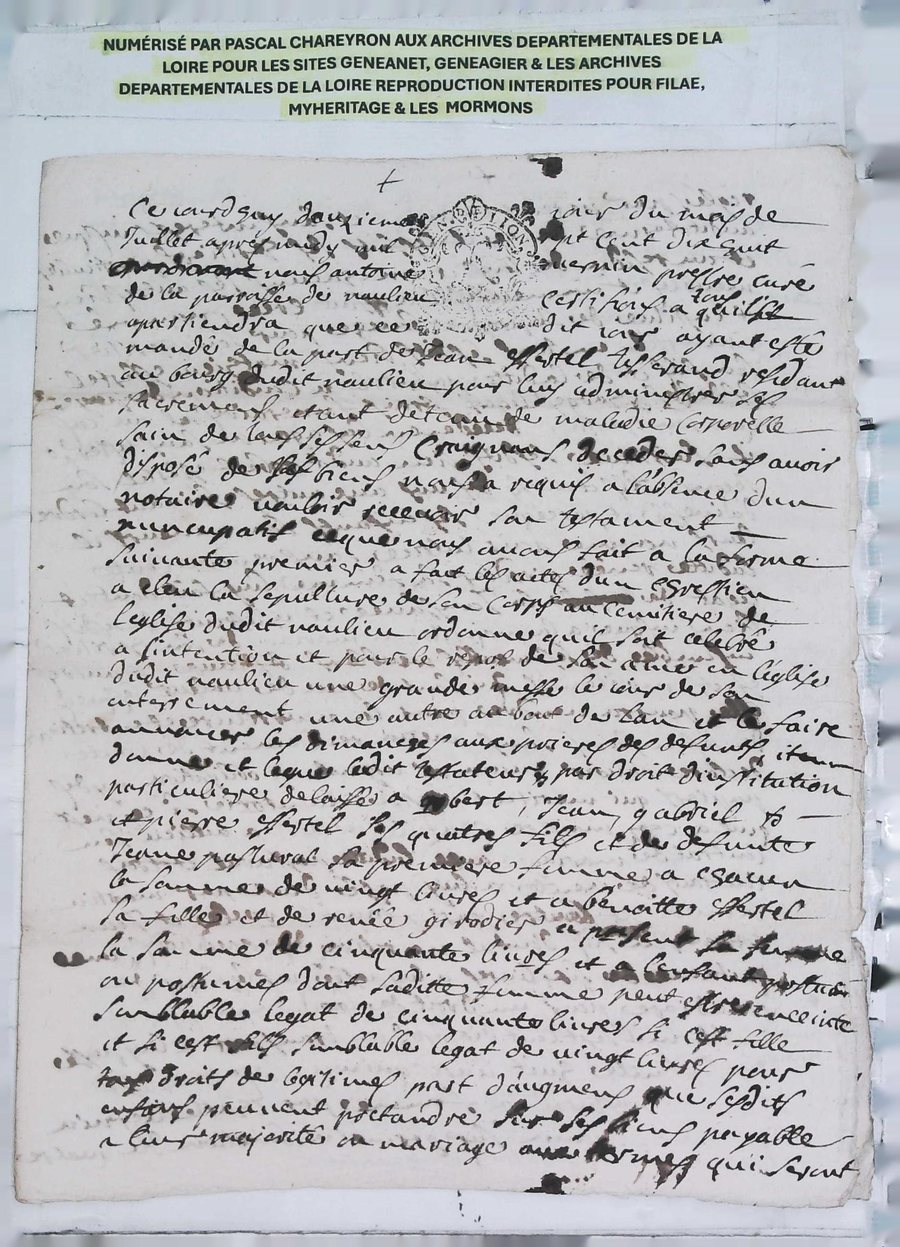 NUMÉRISÉ PAR PASCAL CHAREYRON AUX ARCHIVES DEPARTEMENTALES DE LA
LOIRE POUR LES SITES GENEANET, GENEAGIER & LES ARCHIVES
DEPARTEMENTALES DE LA LOIRE REPRODUCTION INTERDITES POUR FILAE,
MYHERITAGE & LES MORMONS
Ce jourdhuy douziem jour du mois de
Juillet apres midy mil sept cent dix huit
nous antoine prestre curé
de la parroisse de naulieu certifions a tous quil
apartiendra que ce dit jour ayant esté
mandé de la part de Jean tisserand residant
au bourg dudit naulieu pour luy administrer les
sacremens etant detenu de maladie corporelle
sain de tous ses sens craignant deceder sans avoir
disposé de ses biens nous a requis a labsence dun
notaire vouloir recevoir son testament
nuncupatif ce que nous avons fait a la forme
suivante premier a fait les actes dun chrestien
a eleu la sepulture de son corps au cemitiere de
leglise dudit naulieu ordonne quil soit celebré
a sintention et pour le repos de son ame en leglise
dudit naulieu une grande messe le jour de son
enterrement une autre au bout de lan et le faire
annoncer les dimanches aux prieres des defunts, item
donne et legue ledit testateur par droit dinstitution
particuliere delaisse a , Jean, gabriel
et pierre ses quatres fils et de defunte
Jeane pasturat sa premiere femme a chacun
la somme de vingt livres et a benoitte
sa fille et de renée girodier a present sa femme
la somme de cinquante livres et a lenfant postume
ou postumes dont saditte femme peut estre enceinte
semblable legat de cinquante livres si cest fille
et si cest fils semblable legat de vingt livres pour
tous droits de legitimes part daugment que sesdits
enfans peuvent pretandre sur ses biens payable
a leur majorité ou mariage aux termes qui seront